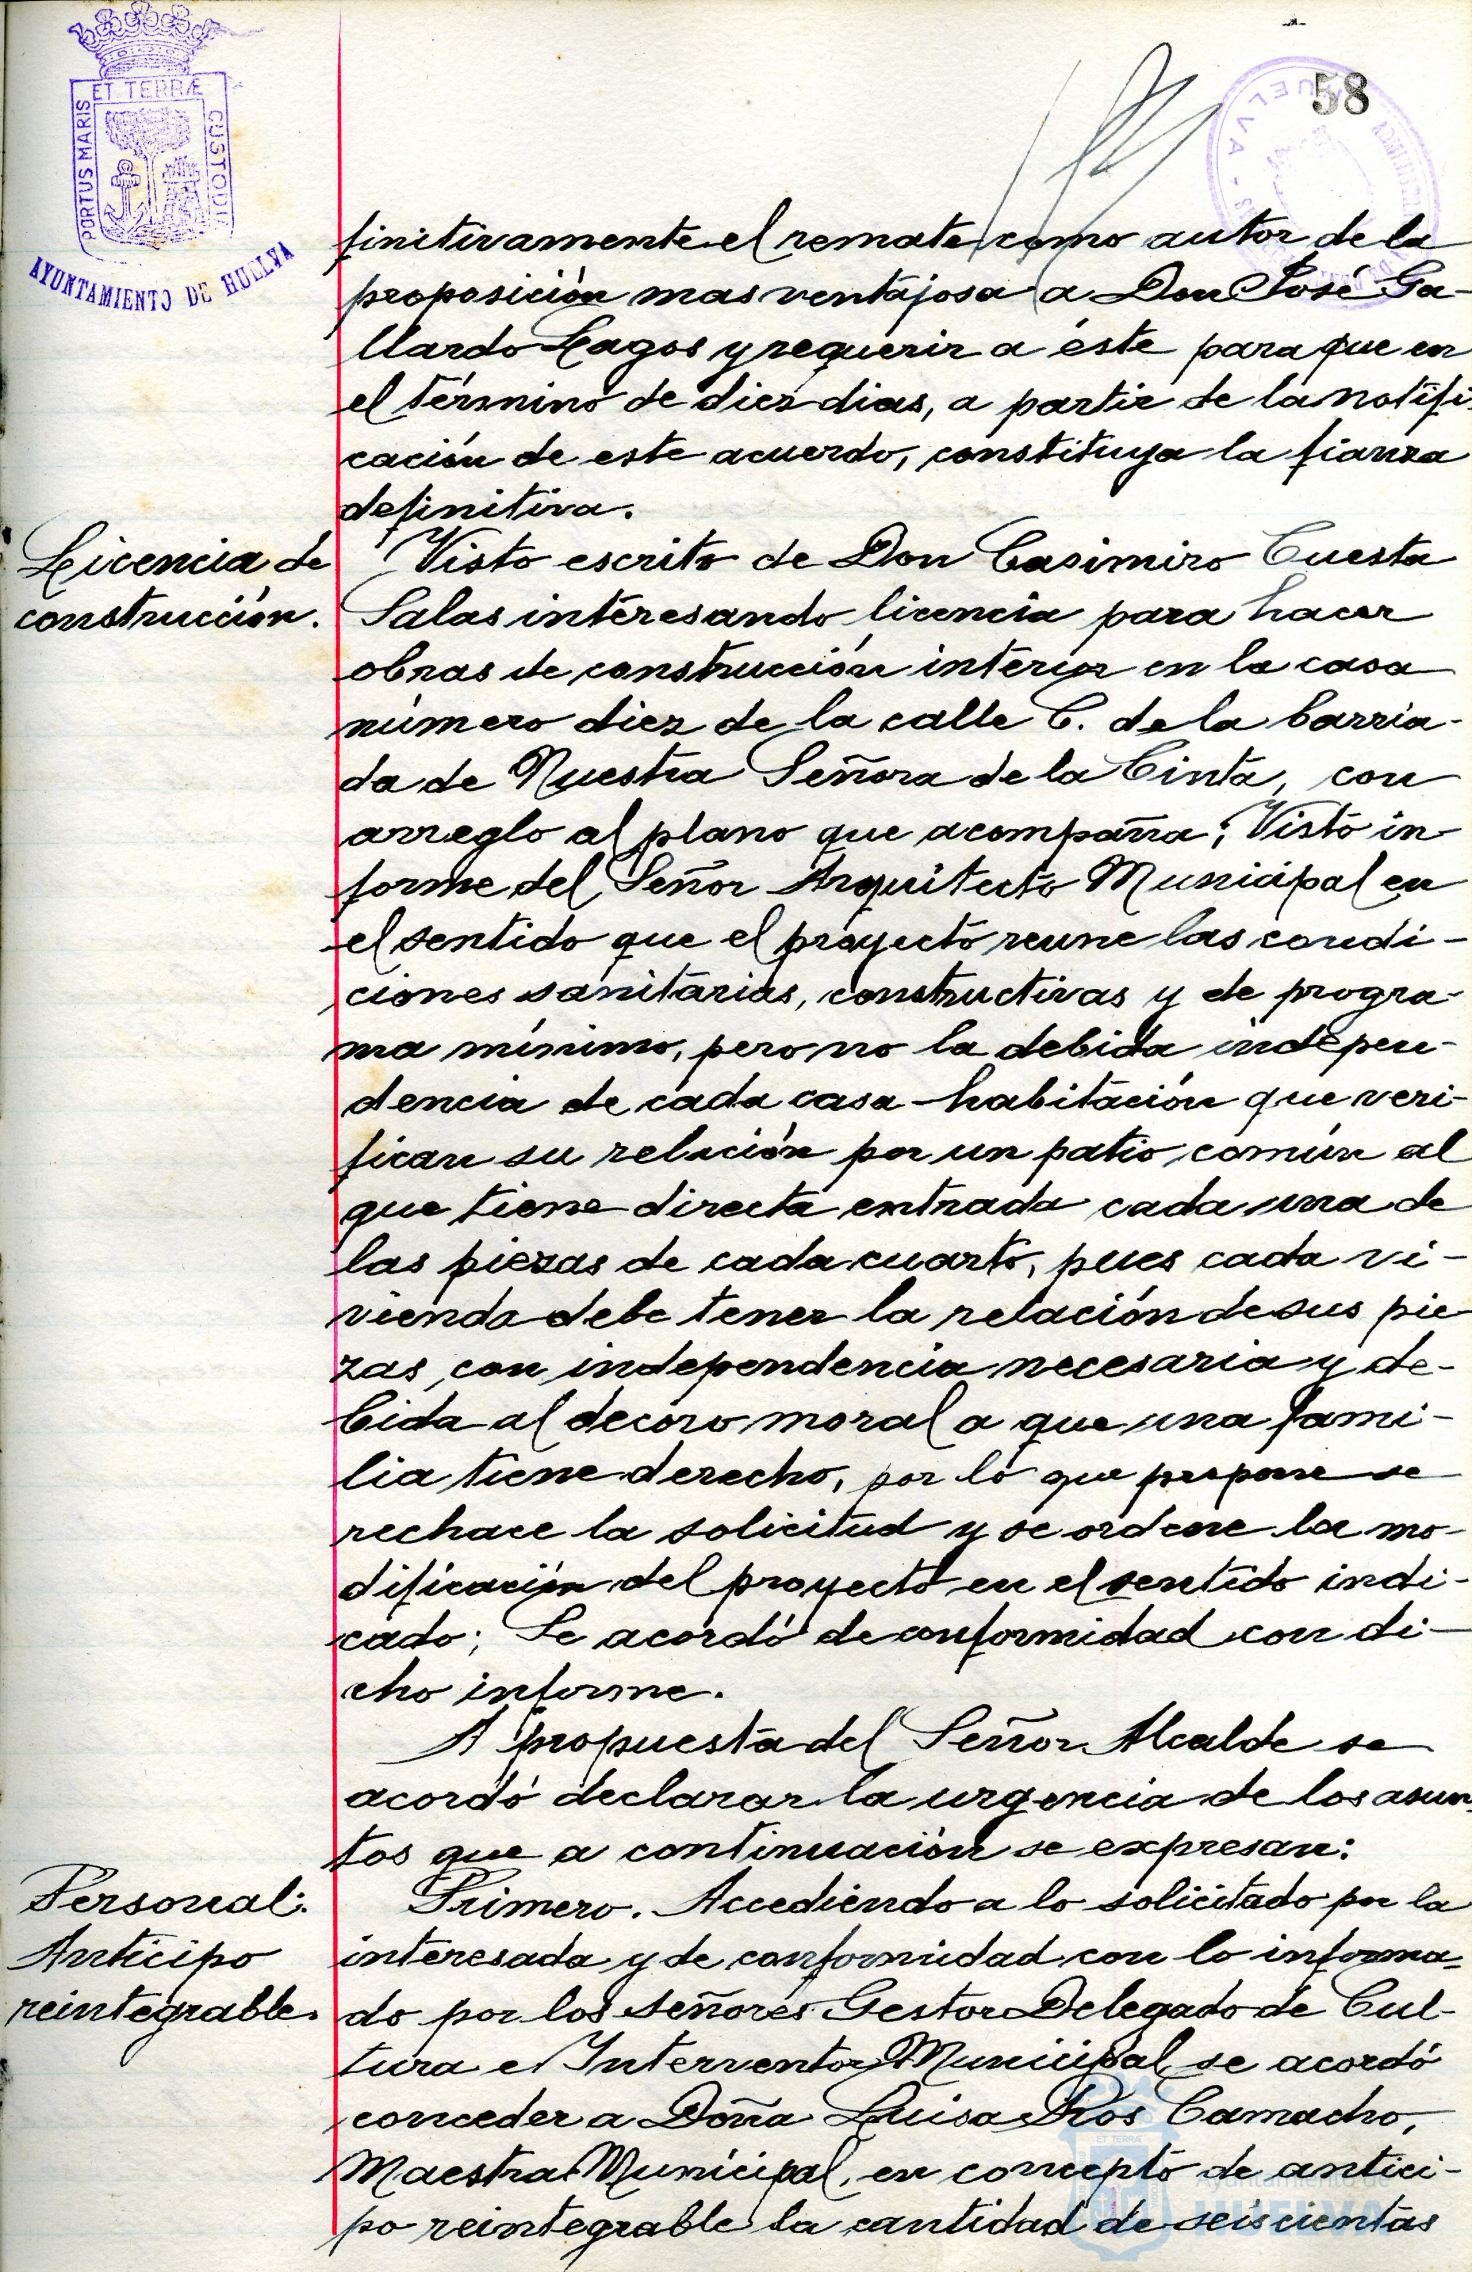 58
ET TERRÆ
PORTUS MARIS
CUSTODIA
AYUNTAMIENTO DE HUELVA
HUELVA
finitivamente el remate como autor de la
proposición mas ventajosa a Don José Ga-
llardo Lagos y requerir a éste para que en
el término de diez dias, a partir de la notifi-
cación de este acuerdo, constituya la fianza
definitiva.
Licencia de
construcción.
Visto escrito de Don Casimiro Cuesta
Salas interesando licencia para hacer
obras de construcción interior en la casa
número diez de la calle C. de la barria-
da de Nuestra Señora de la Cinta, con
arreglo al plano que acompaña; Visto in-
forme del Señor Arquitecto Municipal en
el sentido que el proyecto reune las condi-
ciones sanitarias, constructivas y de progra-
ma mínimo, pero no la debida indepen-
dencia de cada casa-habitación que veri-
fican su relación por un patio común al
que tiene directa entrada cada una de
las piezas de cada cuarto, pues cada vi-
vienda debe tener la relación de sus pie
zas, con independencia necesaria y de-
bida al decoro moral a que una fami-
lia tiene derecho, por lo que propone se
rechace la solicitud y se ordene la mo-
dificación del proyecto en el sentido indi-
cado; Se acordó de conformidad con di-
cho informe.
A propuesta del Señor Alcalde se
acordó declarar la urgencia de los asun-
tos que a continuación se expresan:
Personal:
Anticipo
reintegrable.
Primero. Accediendo a lo solicitado por la
interesada y de conformidad con lo informa-
do por los señores Gestor Delegado de Cul-
tura e Interventor Municipal, se acordó
conceder a Doña Luisa Ros Camacho,
Maestra Municipal, en concepto de antici-
po reintegrable la cantidad de seiscientas
Ayuntamiento de
HUELVA